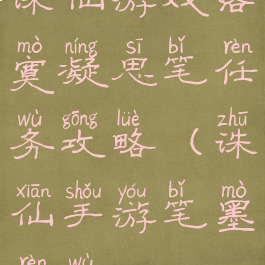 诛仙游戏落
mò níng sī bǐ rèn
寞凝思笔任
wù gōng lüè zhū
务攻略（诛
xiān shǒu yóu bǐ mò
仙手游笔墨
rèn wù